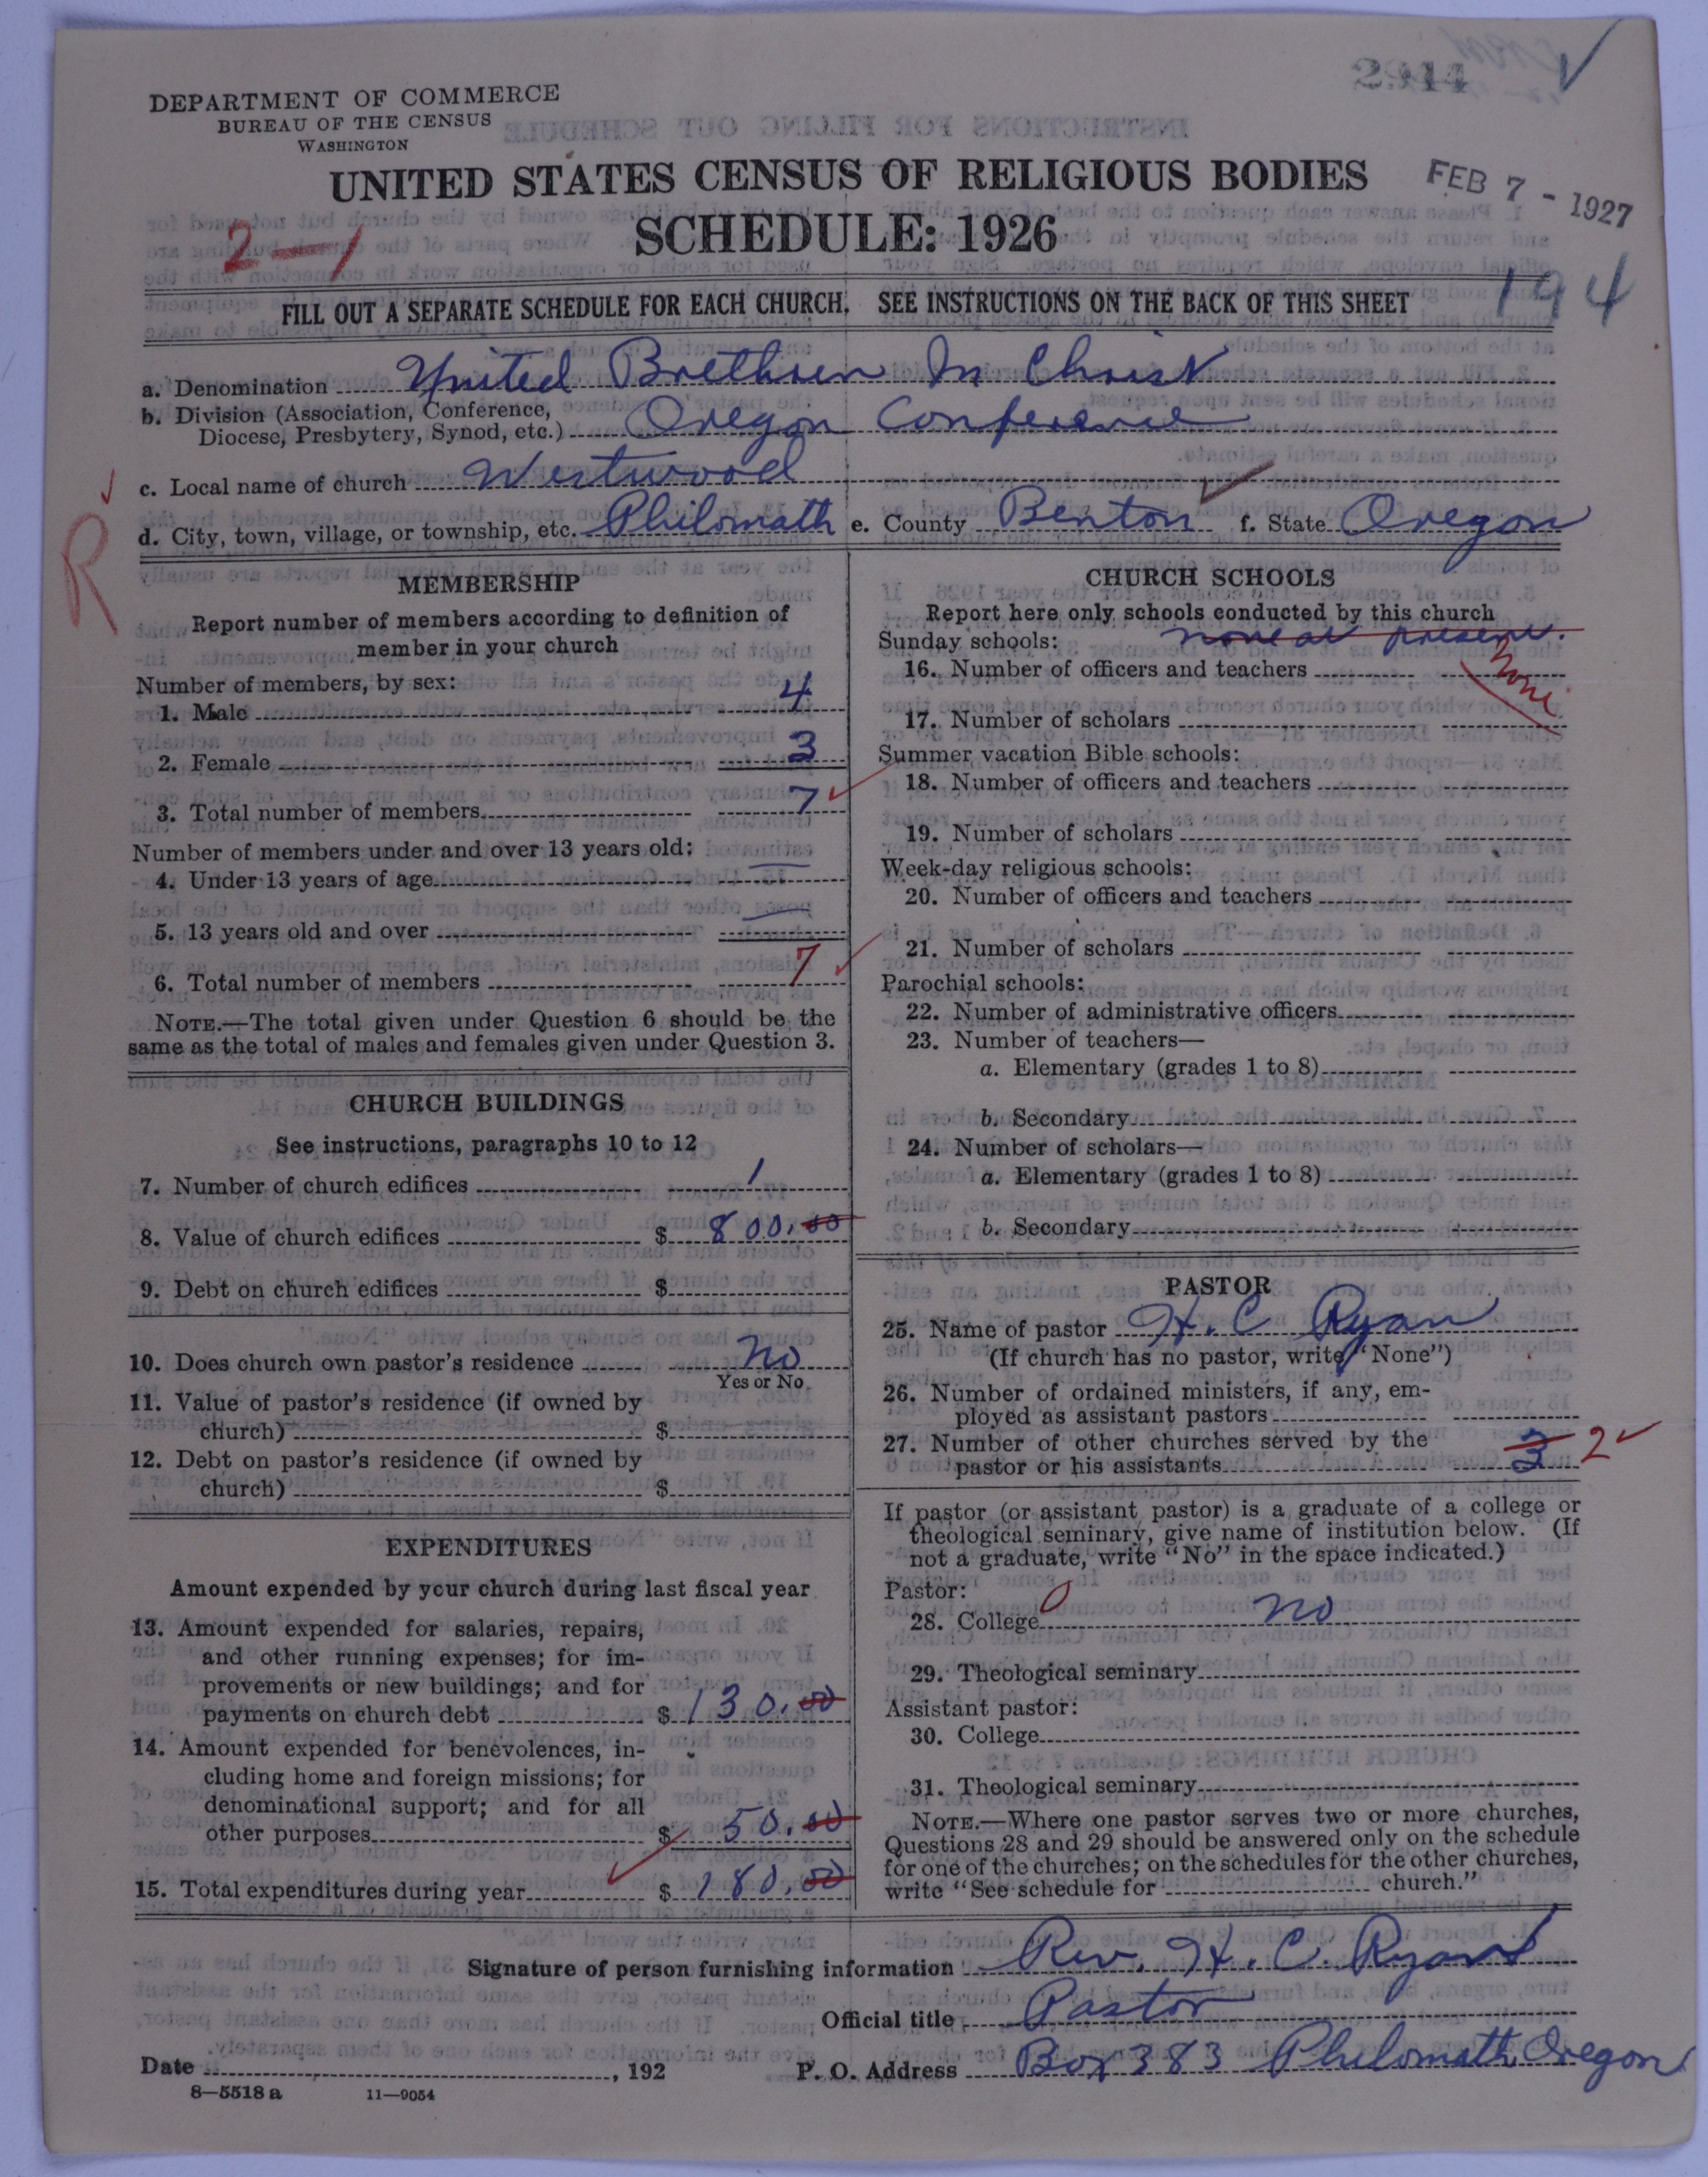 2944
DEPARTMENT OF COMMERCE
BUREAU OF THE CENSUS
WASHINGTON
UNITED STATES CENSUS OF RELIGIOUS BODIES
SCHEDULE: 1926
FEB 7 - 1927
2-1
194
FILL OUT A SEPARATE SCHEDULE FOR EACH CHURCH. SEE INSTRUCTIONS ON THE BACK OF THIS SHEET
a. Denomination United Brethren In Christ
b. Division (Association, Conference,
Diocese, Presbytery, Synod, etc.) Oregon Conference
c. Local name of church Westwood
d. City, town, village, or township, etc. Philomath e. County Benton f. State Oregon
R
MEMBERSHIP
Report number of members according to definition of
member in your church
Number of members, by sex:
1. Male 4
2. Female 3
3. Total number of members 7
Number of members under and over 13 years old:
4. Under 13 years of age
5. 13 years old and over
6. Total number of members 7
NOTE.—The total given under Question 6 should be the
same as the total of males and females given under Question 3.
CHURCH BUILDINGS
See instructions, paragraphs 10 to 12
7. Number of church edifices 1
8. Value of church edifices $ 800.00
9. Debt on church edifices $
10. Does church own pastor's residence no
Yes or No
11. Value of pastor's residence (if owned by
church) $
12. Debt on pastor's residence (if owned by
church) $
EXPENDITURES
Amount expended by your church during last fiscal year
13. Amount expended for salaries, repairs,
and other running expenses; for im-
provements or new buildings; and for
payments on church debt $ 130.00
14. Amount expended for benevolences, in-
cluding home and foreign missions; for
denominational support; and for all
other purposes $ 50.00
15. Total expenditures during year $ 180.00
CHURCH SCHOOLS
Report here only schools conducted by this church
Sunday schools: none at present.
16. Number of officers and teachers none
17. Number of scholars
Summer vacation Bible schools:
18. Number of officers and teachers
19. Number of scholars
Week-day religious schools:
20. Number of officers and teachers
21. Number of scholars
Parochial schools:
22. Number of administrative officers
23. Number of teachers—
a. Elementary (grades 1 to 8)
b. Secondary
24. Number of scholars—
a. Elementary (grades 1 to 8)
b. Secondary
PASTOR
25. Name of pastor H. C Ryan
(If church has no pastor, write "None")
26. Number of ordained ministers, if any, em-
ployed as assistant pastors
27. Number of other churches served by the
pastor or his assistants 3 2
If pastor (or assistant pastor) is a graduate of a college or
theological seminary, give name of institution below. (If
not a graduate, write "No" in the space indicated.)
Pastor:
28. College 0 no
29. Theological seminary
Assistant pastor:
30. College
31. Theological seminary
NOTE.—Where one pastor serves two or more churches,
Questions 28 and 29 should be answered only on the schedule
for one of the churches; on the schedules for the other churches,
write "See schedule for church."
Signature of person furnishing information Rev. H. C. Ryan
Official title Pastor
Date , 192 P. O. Address Box 383 Philomath Oregon
8—5518 a 11—9054